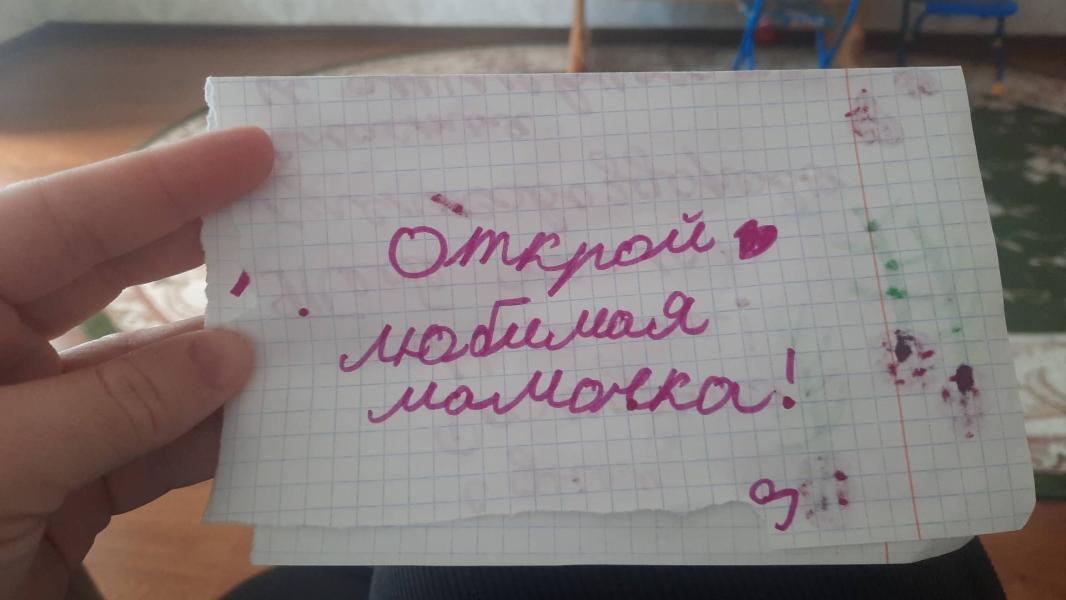 Открой
любимая
мамочка!